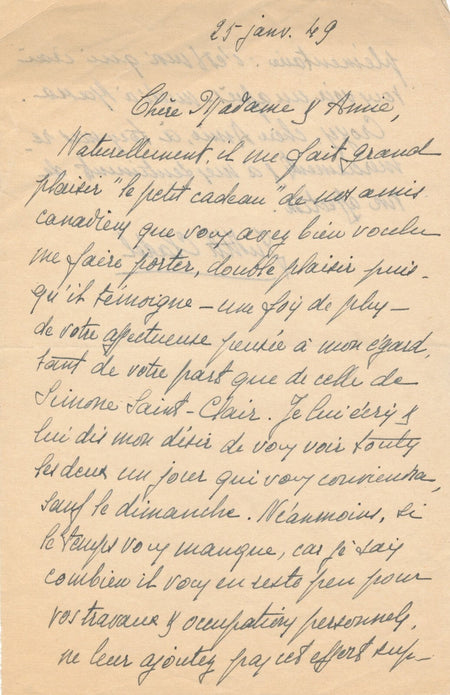 25 janv. 49
Chère Madame & Amie,
Naturellement, il me fait grand
plaisir "le petit cadeau" de nos amis
canadiens que vous avez bien voulu
me faire porter, double plaisir puis-
qu'il témoigne – une fois de plus –
de votre affectueuse pensée à mon égard,
tant de votre part que de celle de
Simone Saint-Clair. Je lui écris &
lui dis mon désir de vous voir toutes
les deux un jour qui vous conviendra,
sauf le dimanche. Néanmoins, si
le temps vous manque, car je sais
combien il vous en reste peu pour
vos travaux & occupations personnels,
ne leur ajoutez pas cet effort sup-